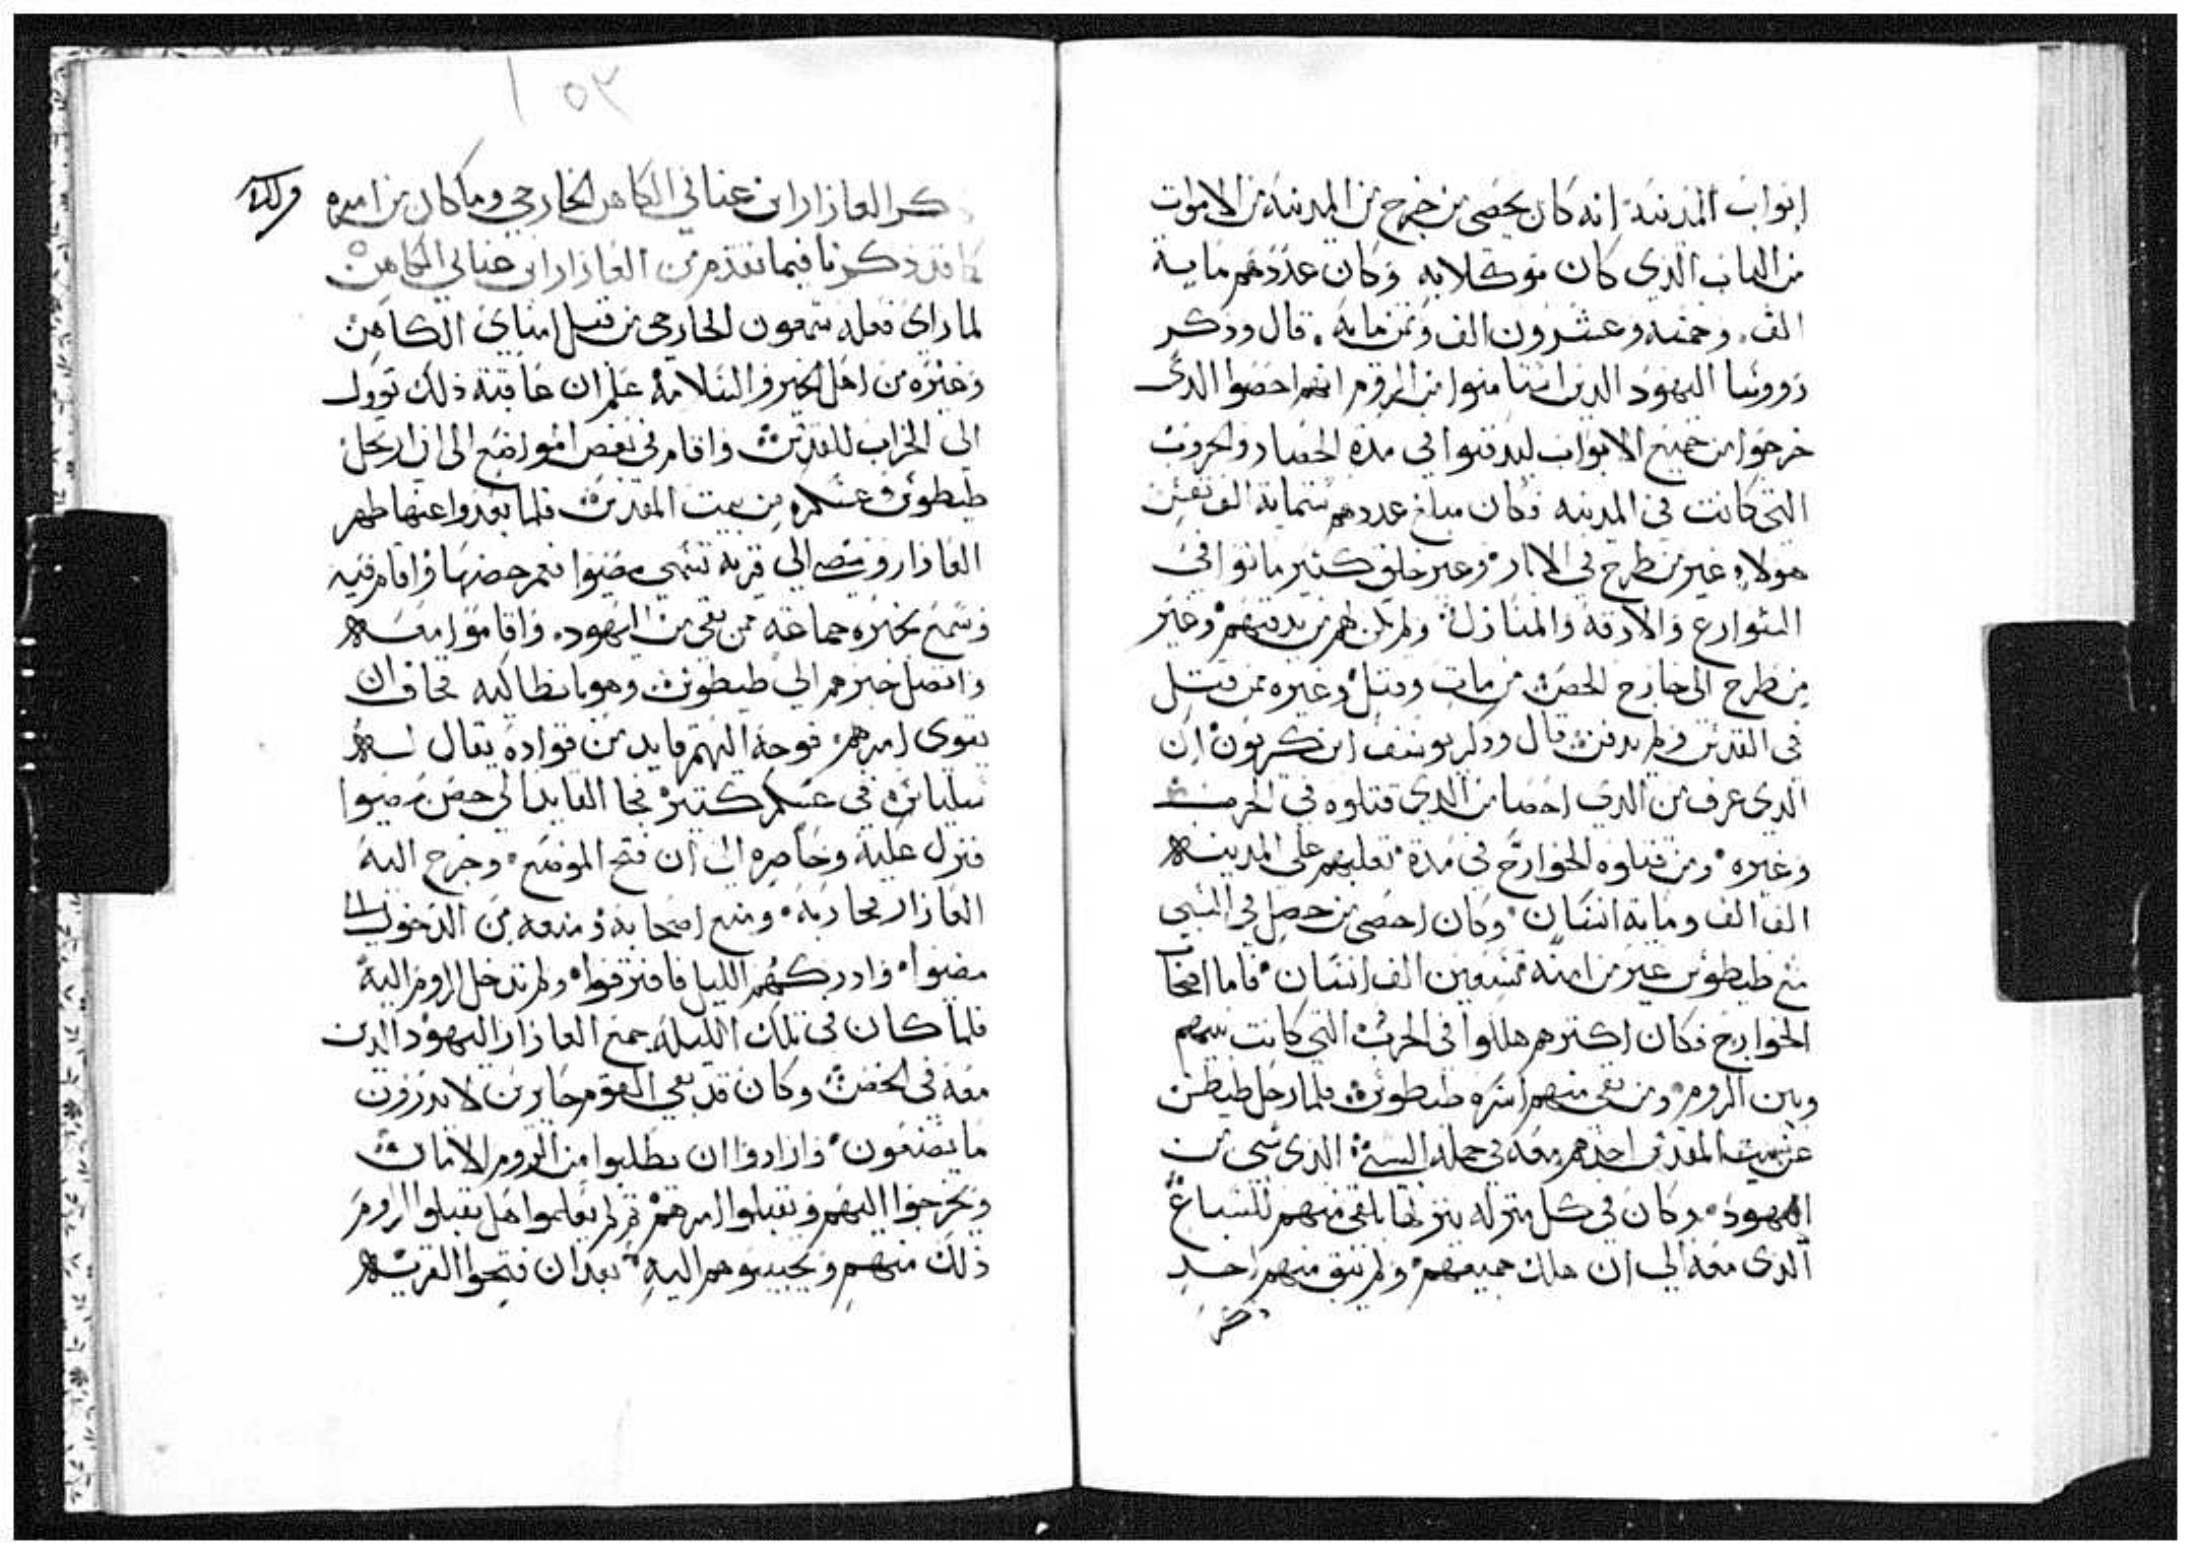 ابواب المدينة انه كان يحصى من خرج من المدينة من الاموات
من الباب الذي كان موكلا به وكان عددهم ماية
الف وخمسه وعشرون الف وثمن مايه. قال وذكر
رووسا اليهود الذين استامنوا من الروم انهم احصوا الذي
خرجوا من جميع الابواب ليدفنوا في مدة الحصار والحروب
التي كانت في المدينه فكان مبلغ عددهم ستماية الف نفس
هولاء غير من طرح في الابار وغير خلق كثير ماتوا في
الشوارع والازقه والمنازل ولم يكن لهم من يدفنهم وغير
من طرح الى خارج الحصن من مات وقتل وغيره ممن قتل
في القدس ولم يدفن قال وذكر يوسف ابن كربون ان
الذي عرف من الذي احصا من الذي قتلوه في الحرب
وغيره ومن قتلوه الخوارج في مدة تغلبهم على المدينه
الف الف ومائة انسان وكان احصى من حصل في السبي
مع طيطوس غير من امنه تسعين الف انسان فاما اصحاب
الخوارج فكان اكثرهم هلكوا في الحرب التي كانت بينهم
وبين الروم ومن بقي منهم اسره طيطوس فلما رحل طيطس
عن بيت المقدس اخذهم معه في جملة السبي الذي سبي من
اليهود وكان في كل منزله ينزلها يلقي منهم للسباع
الذي معه الى ان هلك جميعهم ولم يبق منهم احد
ذكر
١٥٣
ذكر العازار ابن عناني الكاهن الخارجي وما كان من امره
كما قد ذكرنا فيما تقدم من العازار ابن عناني الكاهن
لما راى فعله شمعون الخارجي من قتل امتاى الكاهن
وغيره من اهل الخير والسلامة علم ان عاقبة ذلك توول
الى الخراب للقدس واقام في بعض المواضع الى ان ارتحل
طيطوس وعسكره من بيت المقدس فلما بعدوا عنها ظهر
العازار ومضى الى قرية تسمى مصيوا فعمر حصنها واقام فيه
وسمع بخبره جماعة ممن بقي من اليهود. واقاموا معه
واتصل خبرهم الى طيطوس وهو بانطاكيه فخاف ان
يقوى امرهم فوجه اليهم قايد من قواده يقال له
سلياس في عسكر كثير فجا القايد الى حصن مصيوا
فنزل عليه وحاصره الى ان فتح الموضع وخرج اليه
العازار بحاربه ومنع اصحابه ومنعه من الدخول الى
مصيوا وادركهم الليل فافترقوا ولم تدخل الروم اليه
فلما كان في تلك الليله جمع العازار اليهود الذين
معه في الحصن وكان قد بقي القوم حايرين لا يدرون
ما يصنعون وارادوا ان يطلبوا من الروم الامان
ويخرجوا اليهم ويقبلوا امرهم ثم لم يعلموا هل يقبلوا الروم
ذلك منهم ويجيبوهم اليه بعد ان فتحوا القريه